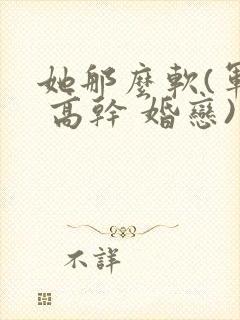 她那麼軟(軍
高幹 婚戀)
不詳